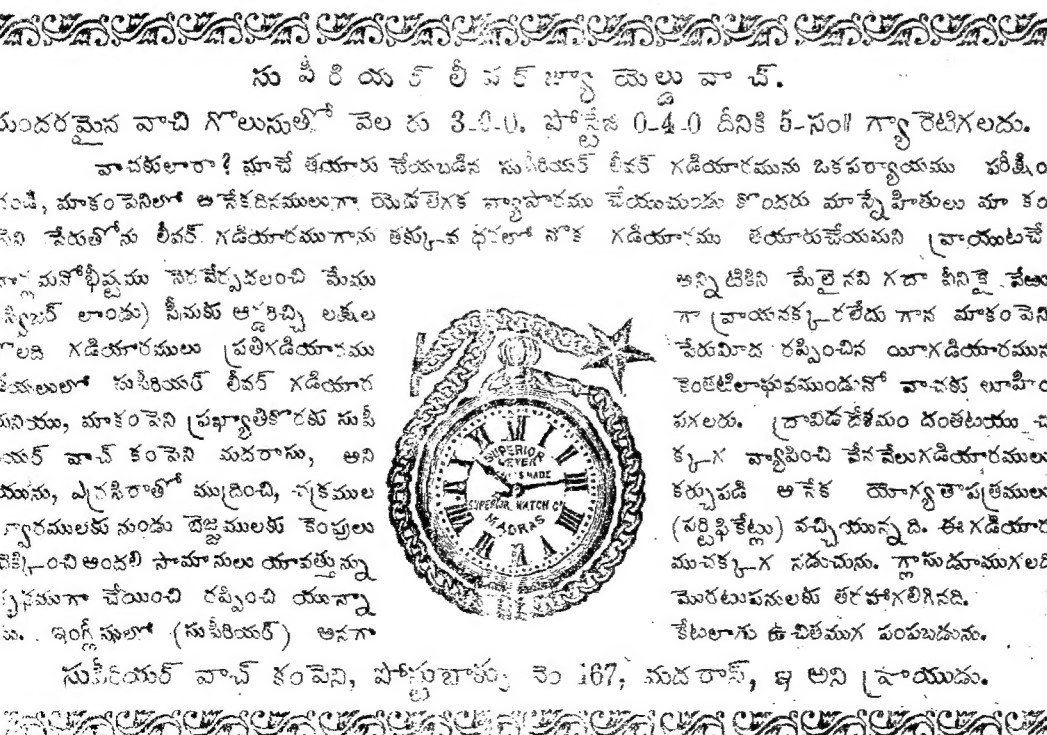 సుపీరియర్ లీవర్ జ్యూయెల్డు వాచ్.
సుందరమైన వాచి గొలుసుతో వెల రు 3-0-0. పోస్టేజి 0-4-0 దీనికి 5-సం॥ గ్యారెటిగలదు.
వాచకులారా? మాచే తయారు చేయబడిన సుపీరియర్ లీవర్ గడియారమును ఒకపర్యాయము పరీక్షిం
గండి, మాకంపెనిలో అనేకదినములుగా యెడతెగక వ్యాపారము చేయుచుండు కొందరు మాస్నేహితులు మా కం
పెని పేరుతోను లీవర్ గడియారముగాను తక్కువ ధరలో నొక గడియారము తయారుచేయమని వ్రాయుటచే
మనోభీష్టము నెరవేర్పదలంచి మేము
లాండు) సీమకు ఆర్డరిచ్చి లక్షల
కొలది గడియారములు ప్రతిగడియారము
డయలులో సుపీరియర్ లీవర్ గడియార
మనియు, మాకంపెని ప్రఖ్యాతికొరకు సుపీ
రియర్ వాచ్ కంపెని మదరాసు, అని
యును, ఎర్రసిరాతో ముద్రించి, చక్రముల
ద్వారములకు నుండు బెజ్జములకు కెంపులు
చెక్కించి అందలి సామానులు యావత్తున్ను
దృఢముగా చేయించి రప్పించి యున్నా
ము. ఇంగ్లీషులో (సుపీరియర్) అనగా
SUPERIOR
LEVER
SWISS MADE
SUPERIOR WATCH Co
MADRAS
అన్నిటికిని మేలైనవి గదా వీనికై వేఱు
గా వ్రాయనక్కరలేదు గాన మాకంపెని
పేరుమీద రప్పించిన యీగడియారమున
కెంతటిలాఘవముండునో వాచకు లూహిం
పగలరు. ద్రావిడదేశమం దంతటయు చ
క్కగ వ్యాపించి వేనవేలుగడియారములు
ఖర్చుపడి అనేక యోగ్యతాపత్రములు
(సర్టిఫికేట్లు) వచ్చియున్నది. ఈగడియార
ముచక్కగ నడుచును. గ్లాసుడూముగలది
మొరటుపనులకు తరహాగలిగినది.
కేటలాగు ఉచితముగ పంపబడును.
సుపీరియర్ వాచ్ కంపెని, పోస్టుబాక్సు నెం 167, మదరాస్, ఇ అని వ్రాయుడు.